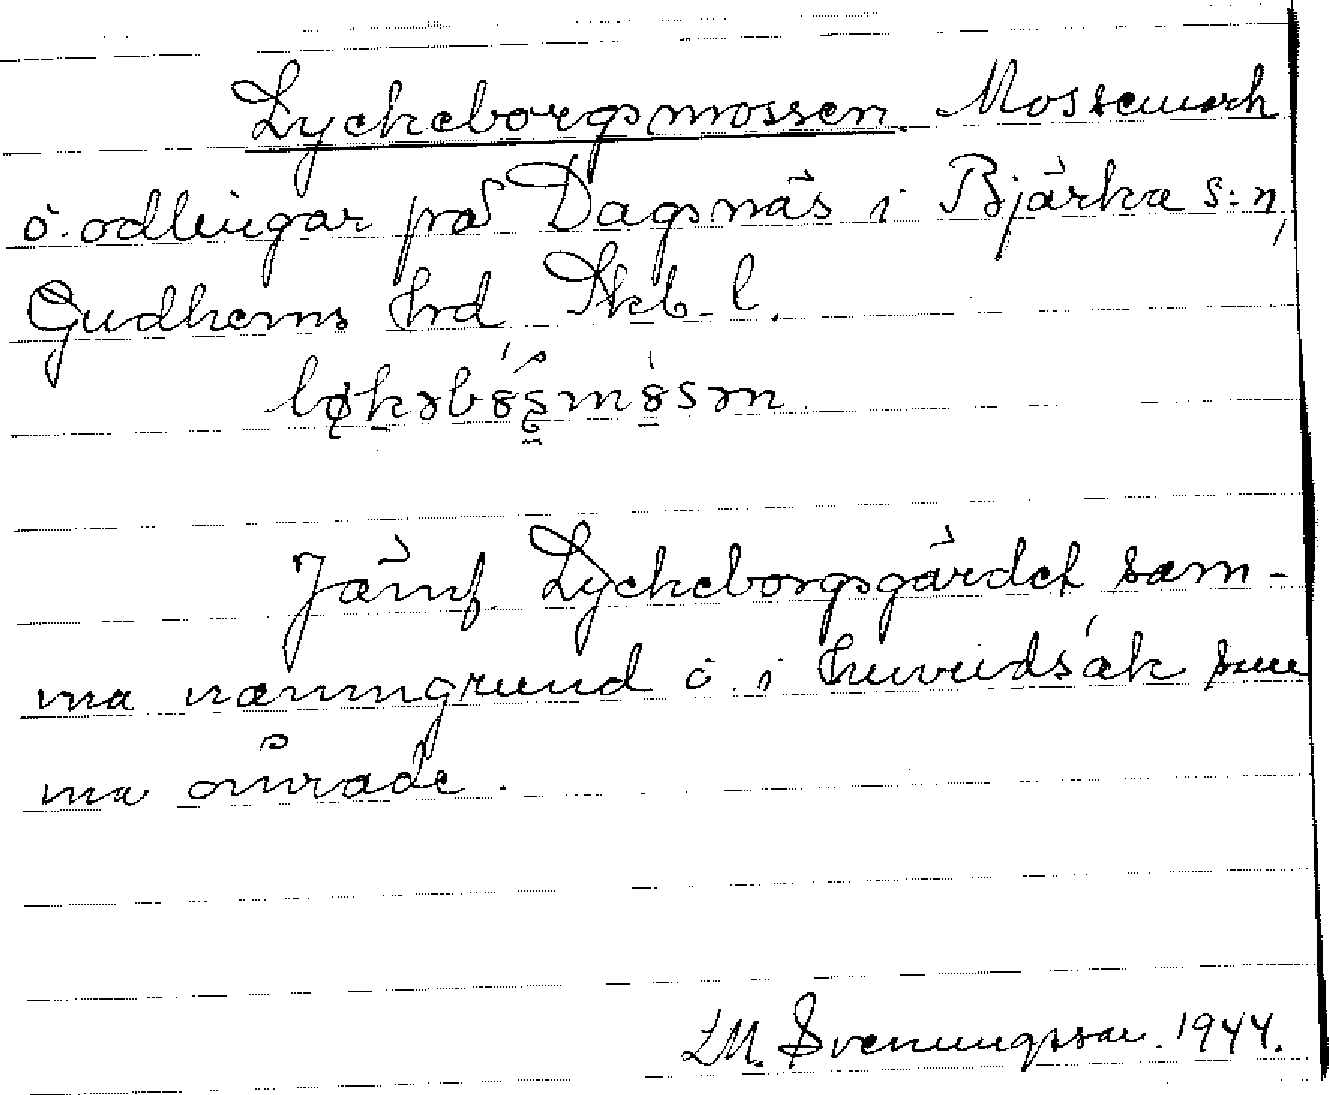 Lyckeborgsmossen. Mossemark
o. odlingar på Dagsnäs i Bjärka s:n,
Gudhems hrd Skb. l.
Jämf. Lyckeborgsgärdet sam-
ma namngrund o. i huvudsak sam
ma område.
LM. Svenungsson. 1944.